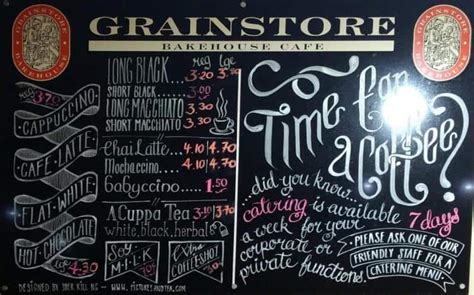 GRAINSTORE
BAKEHOUSE CAFE
GRAINSTORE
BAKEHOUSE
GRAINSTORE
BAKEHOUSE
reg 3.70
CAPPUCCINO
CAFE · LATTE
FLAT · WHITE
HOT · CHOCOLATE
reg lge
LONG BLACK... 3.20 3.90
SHORT BLACK ..... 3.00
LONG MACCHIATO
SHORT MACCHIATO ..
Chai Latte..... 4.10/4.70
Mochaccino.... 4.10/4.70
Babyccino ..... 1.50
A Cuppa Tea 3.10/3.70
white, black, herbal
Soy
M·I·L·K
Extra
COFFEE SHOT
.70
Time for
a Coffee?
...did you know...
catering is available
7 days
a week for your
corporate or
private functions.
PLEASE ASK ONE OF OUR
FRIENDLY STAFF FOR A
CATERING MENU